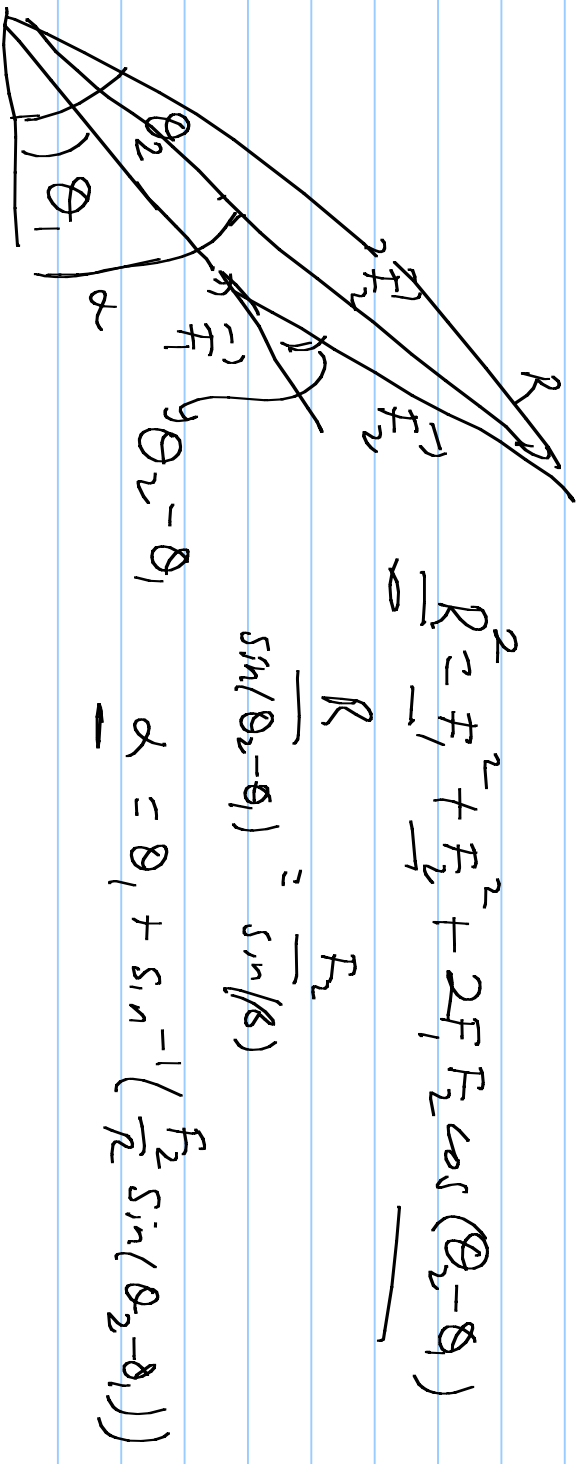 R
F₂
F₂
F₁
θ₂
θ₁
α
θ₂-θ₁
R² = F₁² + F₂² + 2F₁F₂ cos(θ₂-θ₁)
R/sin(θ₂-θ₁) = F₂/sin(β)
α = θ₁ + sin⁻¹(F₂/R sin(θ₂-θ₁)))